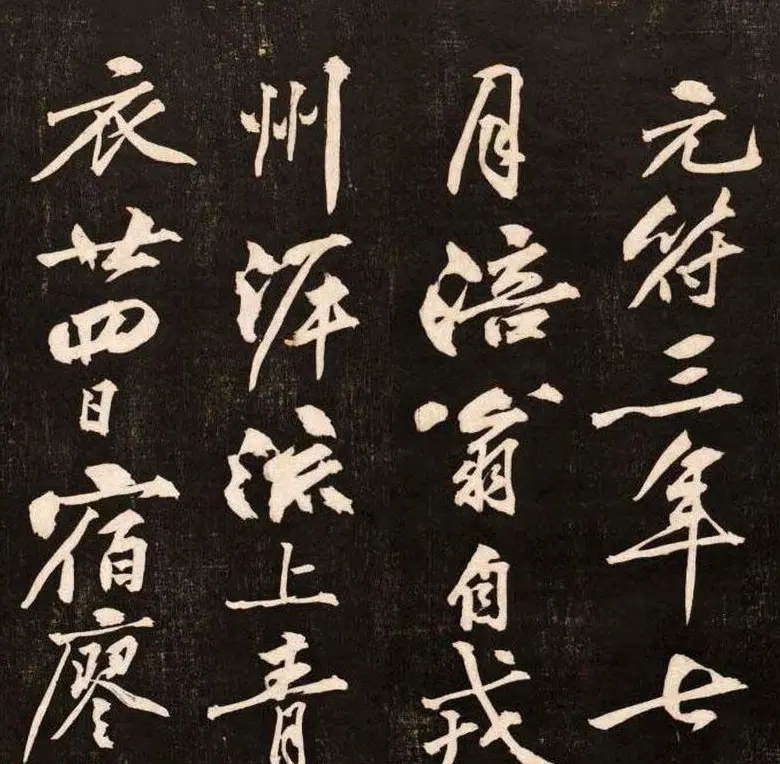 元符三年七
月涪翁自戎
州泝流上青
衣廿四日宿廖